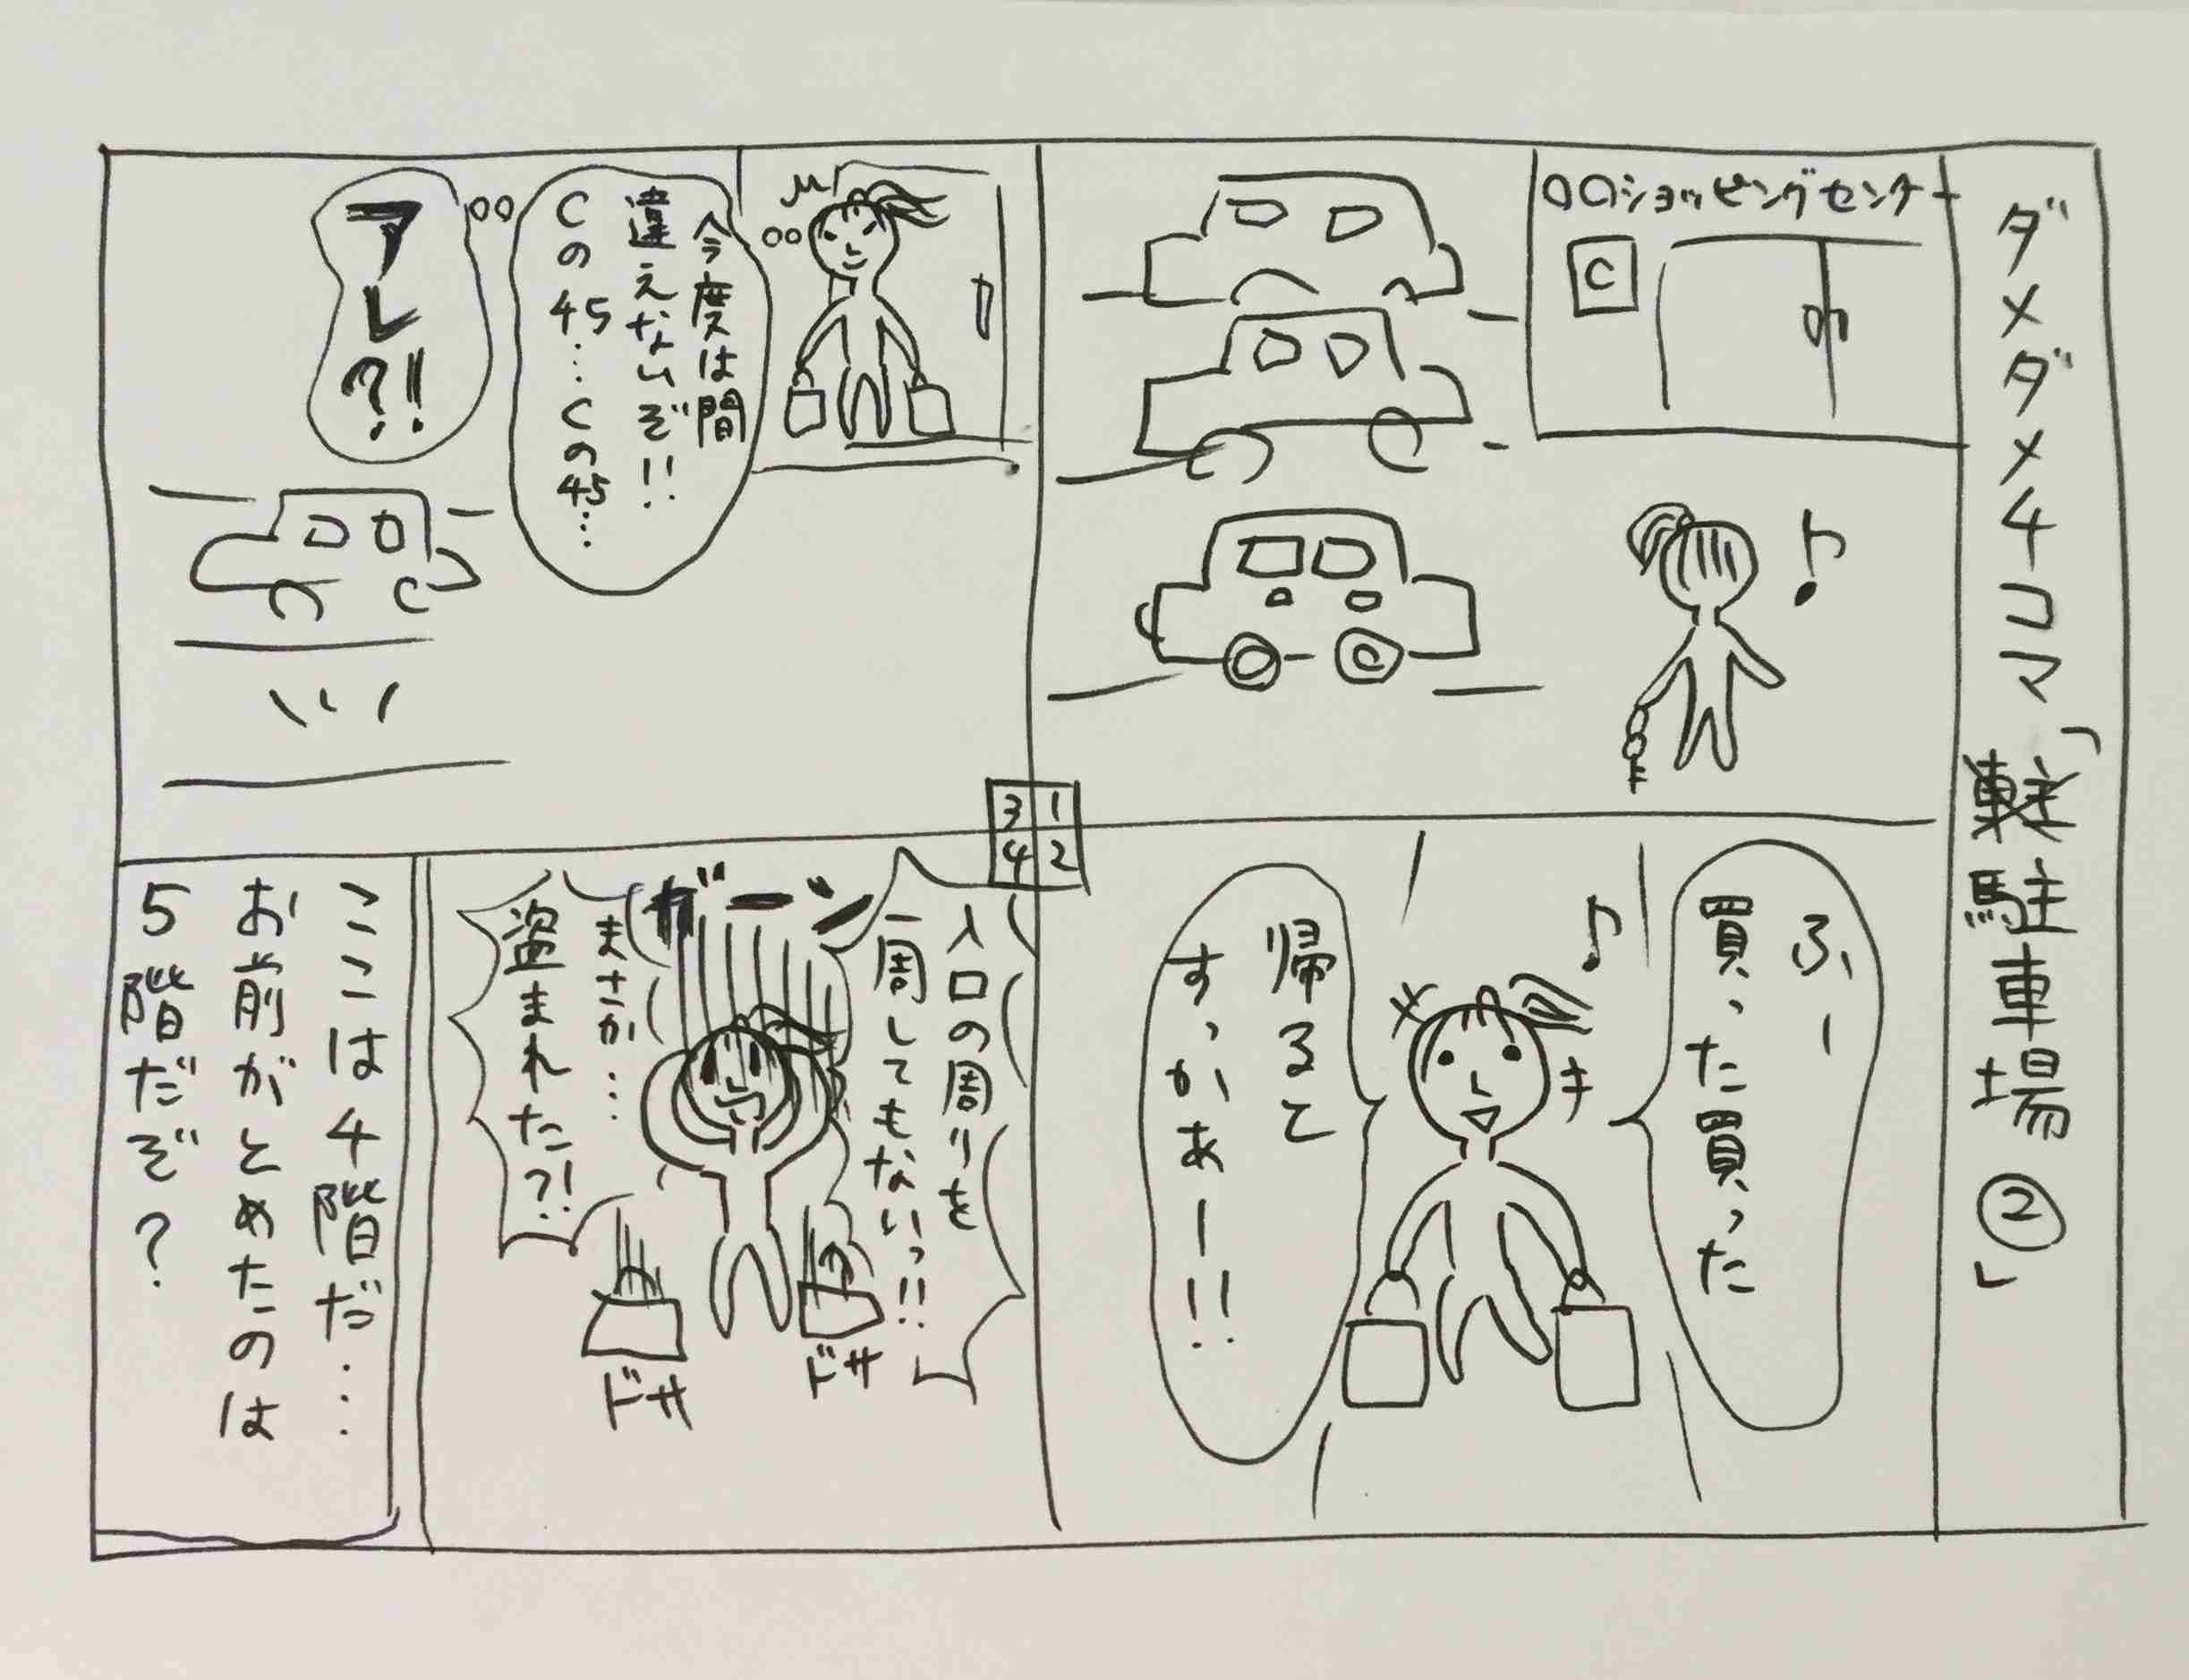 ダメダメ4コマ「駐車場②」
○○ショッピングセンター
C
1
2
3
4
ふー
買った買った
帰ると
すっかぁー!!
今度は間
違えないぞ!!
Cの45…Cの45…
アレ?!!
入口の周りを
一周してもないっ!!
ガーン
まさか…
盗まれた?!
ドサ
ドサ
ここは4階だ…
お前がとめたのは
5階だぞ?